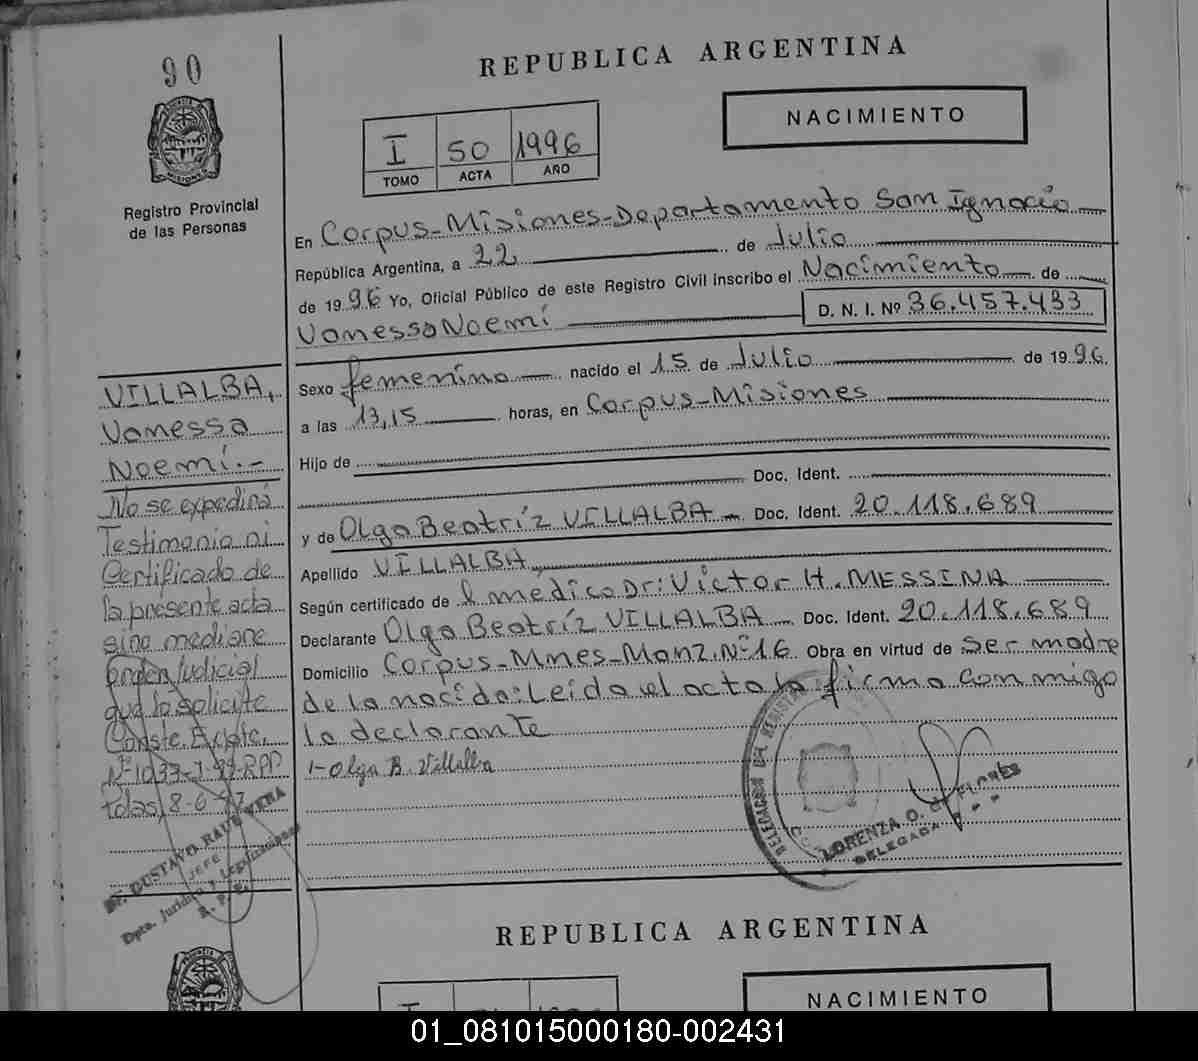 90
REPUBLICA ARGENTINA
NACIMIENTO
I 50 1996
TOMO ACTA AÑO
Registro Provincial
de las Personas
En Corpus-Misiones-Departamento San Ignacio
República Argentina, a 22 de Julio
de 1996 Yo, Oficial Público de este Registro Civil inscribo el Nacimiento de
Vanessa Noemí D. N. I. Nº 36.457.433
Sexo femenino nacido el 15 de Julio de 1996.
a las 13,15 horas, en Corpus-Misiones
Hijo de
Doc. Ident.
y de Olga Beatríz VILLALBA Doc. Ident. 20.118.689
Apellido VILLALBA
Según certificado de l medico Dr: Victor H. MESSINA
Declarante Olga Beatríz VILLALBA Doc. Ident. 20.118.689
Domicilio Corpus-Mnes-Manz.Nº16 Obra en virtud de ser madre
de la nacida: Leída el acta la firma conmigo
la declarante
1-Olga B. Villalba
VILLALBA,
Vanessa
Noemí.-
No se expedirá
Testimonio ni
Certificado de
la presente acta
sino mediane
orden Judicial
que lo solicite
Conste. Expte.
Dr. GUSTAVO RAUL VERA
JEFE
Dpto. Jurídico y Legalizaciones
R. P. P.
DELEGACION DEL REGISTRO
LORENZA O. C. FLORES
DELEGADA
REPUBLICA ARGENTINA
NACIMIENTO
I
01_081015000180-002431